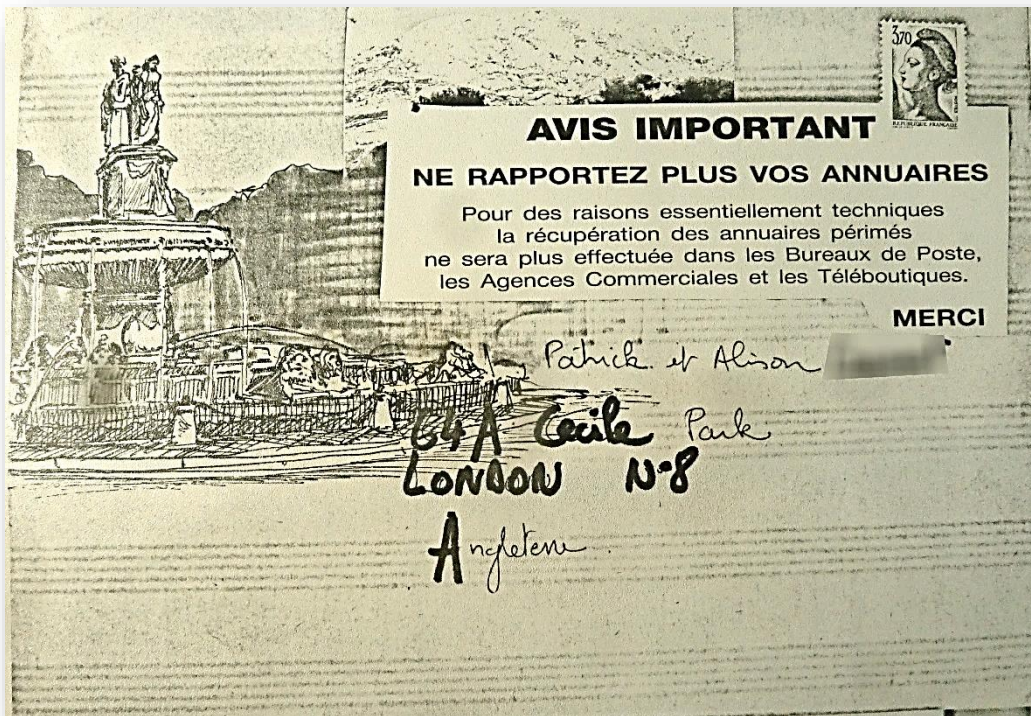 3,70
REPUBLIQUE FRANÇAISE
AVIS IMPORTANT
NE RAPPORTEZ PLUS VOS ANNUAIRES
Pour des raisons essentiellement techniques
la récupération des annuaires périmés
ne sera plus effectuée dans les Bureaux de Poste,
les Agences Commerciales et les Téléboutiques.
MERCI
Patrick et Alison
64A Cecile Park
LONDON N·8
Angleterre